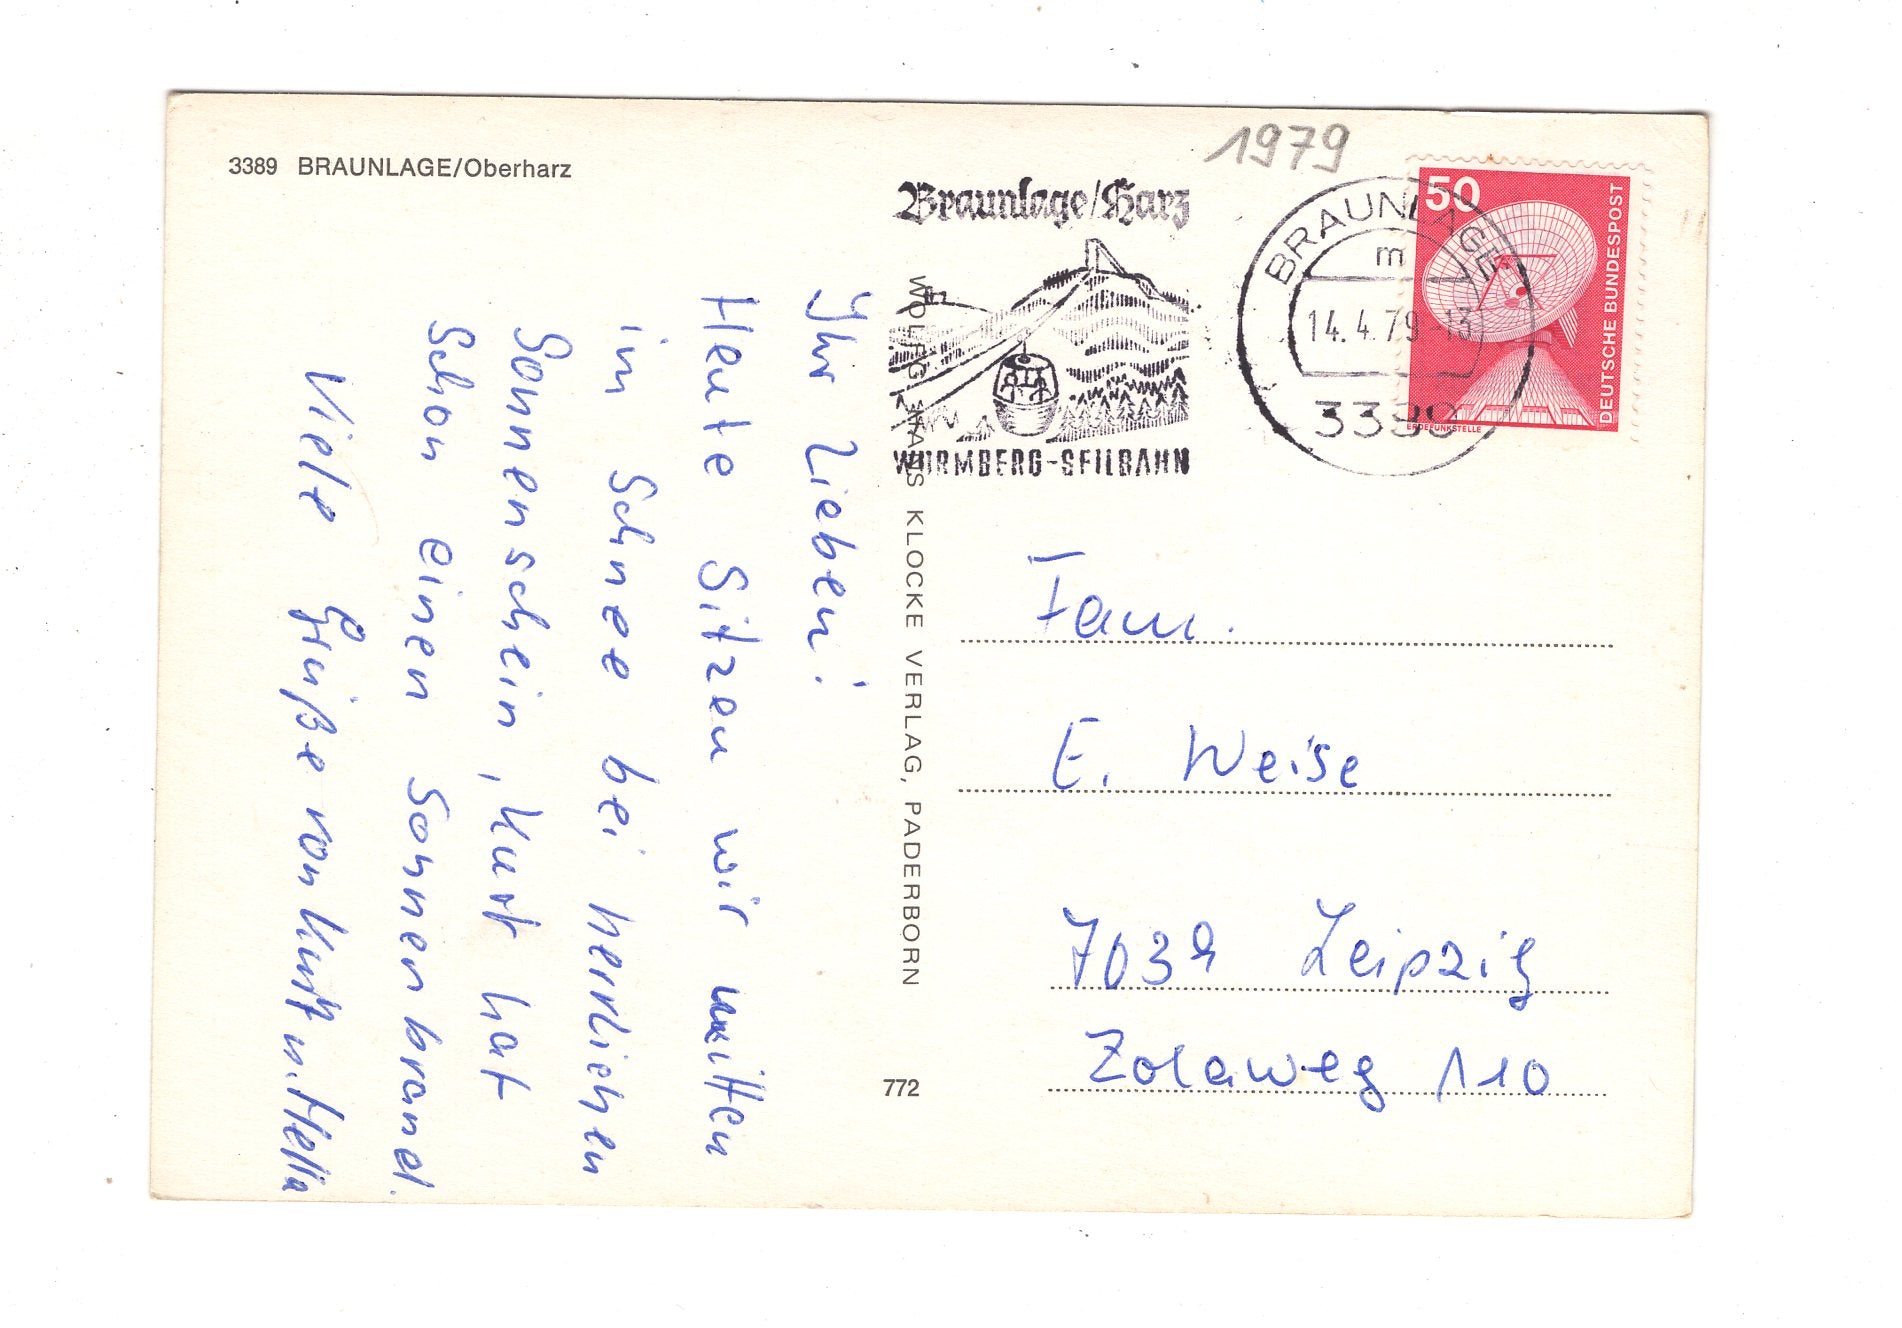 3389 BRAUNLAGE/Oberharz
1979
Braunlage/Harz
WURMBERG-SEILBAHN
BRAUNLAGE
m
14.4.79-13
3389
50
DEUTSCHE BUNDESPOST
ERDEFUNKSTELLE
Ihr Lieben!
Heute Sitzen wir mitten
im Schnee bei herrlichen
Sonnenschein, Kurt hat
Schon einen Sonnenbrand.
Viele Grüße von Kurt u. Hella
WOLFGANG HANS KLOCKE VERLAG, PADERBORN
772
Fam.
E. Weise
7039 Leipzig
Zolaweg 110